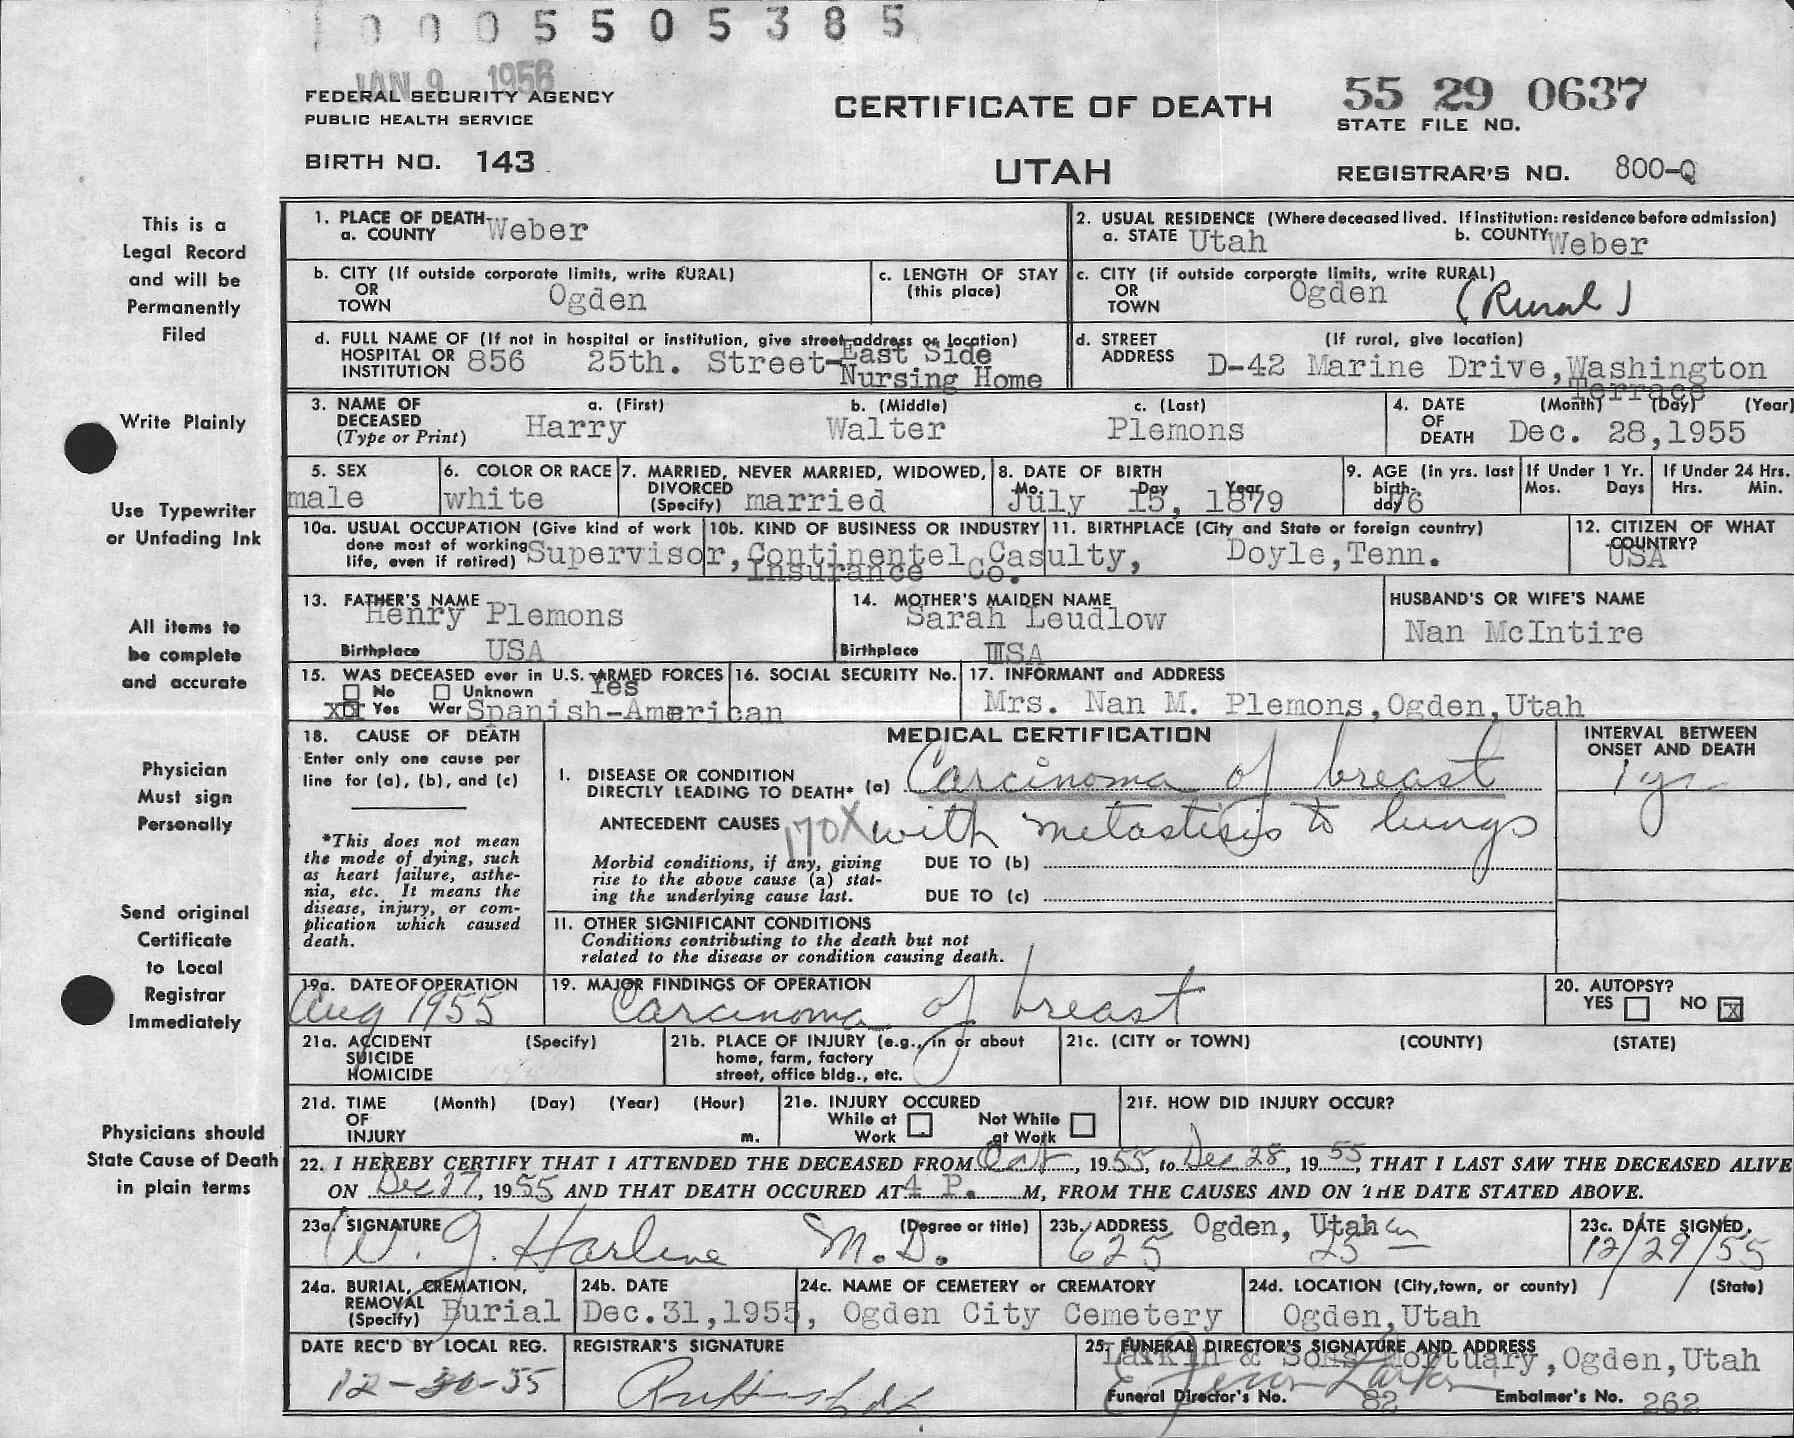 0005505385
JAN 9 1956
FEDERAL SECURITY AGENCY
PUBLIC HEALTH SERVICE
BIRTH NO. 143
CERTIFICATE OF DEATH
UTAH
55 29 0637
STATE FILE NO.
REGISTRAR'S NO. 800-Q
This is a
Legal Record
and will be
Permanently
Filed
Write Plainly
Use Typewriter
or Unfading Ink
All items to
be complete
and accurate
Physician
Must sign
Personally
Send original
Certificate
to Local
Registrar
Immediately
Physicians should
State Cause of Death
in plain terms
1. PLACE OF DEATH
a. COUNTY Weber
2. USUAL RESIDENCE (Where deceased lived. If institution: residence before admission)
a. STATE Utah b. COUNTY Weber
b. CITY (If outside corporate limits, write RURAL)
OR
TOWN Ogden
c. LENGTH OF STAY
(this place)
c. CITY (if outside corporate limits, write RURAL)
OR
TOWN Ogden (Rural)
d. FULL NAME OF (If not in hospital or institution, give street address or location)
HOSPITAL OR
INSTITUTION 856 25th. Street-East Side
Nursing Home
d. STREET (If rural, give location)
ADDRESS D-42 Marine Drive, Washington
Terrace
3. NAME OF
DECEASED
(Type or Print)
a. (First) b. (Middle) c. (Last)
Harry Walter Plemons
4. DATE (Month) (Day) (Year)
OF
DEATH Dec. 28, 1955
5. SEX
male
6. COLOR OR RACE
white
7. MARRIED, NEVER MARRIED, WIDOWED,
DIVORCED
(Specify) married
8. DATE OF BIRTH
Mo. Day Year
July 15, 1879
9. AGE (in yrs. last
birth-
day) 76
If Under 1 Yr.
Mos. Days
If Under 24 Hrs.
Hrs. Min.
10a. USUAL OCCUPATION (Give kind of work
done most of working
life, even if retired) Supervisor,
10b. KIND OF BUSINESS OR INDUSTRY
Continentel Casulty,
Insurance Co.
11. BIRTHPLACE (City and State or foreign country)
Doyle, Tenn.
12. CITIZEN OF WHAT
COUNTRY?
USA
13. FATHER'S NAME
Henry Plemons
Birthplace USA
14. MOTHER'S MAIDEN NAME
Sarah Leudlow
Birthplace USA
HUSBAND'S OR WIFE'S NAME
Nan McIntire
15. WAS DECEASED ever in U.S. ARMED FORCES
Yes
No Unknown
Yes War Spanish-American
16. SOCIAL SECURITY No.
17. INFORMANT and ADDRESS
Mrs. Nan M. Plemons, Ogden, Utah
18. CAUSE OF DEATH
Enter only one cause per
line for (a), (b), and (c)
*This does not mean
the mode of dying, such
as heart failure, asthe-
nia, etc. It means the
disease, injury, or com-
plication which caused
death.
MEDICAL CERTIFICATION
I. DISEASE OR CONDITION
DIRECTLY LEADING TO DEATH* (a) Carcinoma of breast
ANTECEDENT CAUSES 170X with metastisis to lungs
Morbid conditions, if any, giving
rise to the above cause (a) stat-
ing the underlying cause last.
DUE TO (b)
DUE TO (c)
II. OTHER SIGNIFICANT CONDITIONS
Conditions contributing to the death but not
related to the disease or condition causing death.
INTERVAL BETWEEN
ONSET AND DEATH
1 yr
19a. DATE OF OPERATION
Aug 1955
19. MAJOR FINDINGS OF OPERATION
Carcinoma of breast
20. AUTOPSY?
YES NO X
21a. ACCIDENT (Specify)
SUICIDE
HOMICIDE
21b. PLACE OF INJURY (e.g., in or about
home, farm, factory
street, office bldg., etc.
21c. (CITY or TOWN) (COUNTY) (STATE)
21d. TIME (Month) (Day) (Year) (Hour)
OF
INJURY m.
21e. INJURY OCCURED
While at Work
Not While at Work
21f. HOW DID INJURY OCCUR?
22. I HEREBY CERTIFY THAT I ATTENDED THE DECEASED FROM Oct, 1955, to Dec 28, 1955, THAT I LAST SAW THE DECEASED ALIVE
ON Dec 27, 1955 AND THAT DEATH OCCURED AT 4 P. M, FROM THE CAUSES AND ON THE DATE STATED ABOVE.
23a. SIGNATURE (Degree or title)
M.D.
23b. ADDRESS Ogden, Utah
625 25
23c. DATE SIGNED
12/29/55
24a. BURIAL, CREMATION,
REMOVAL
(Specify) Burial
24b. DATE
Dec. 31, 1955,
24c. NAME OF CEMETERY or CREMATORY
Ogden City Cemetery
24d. LOCATION (City, town, or county) (State)
Ogden, Utah
DATE REC'D BY LOCAL REG.
12-30-55
REGISTRAR'S SIGNATURE
25. FUNERAL DIRECTOR'S SIGNATURE AND ADDRESS
Larkin & Sons Mortuary, Ogden, Utah
Funeral Director's No. 82 Embalmer's No. 262